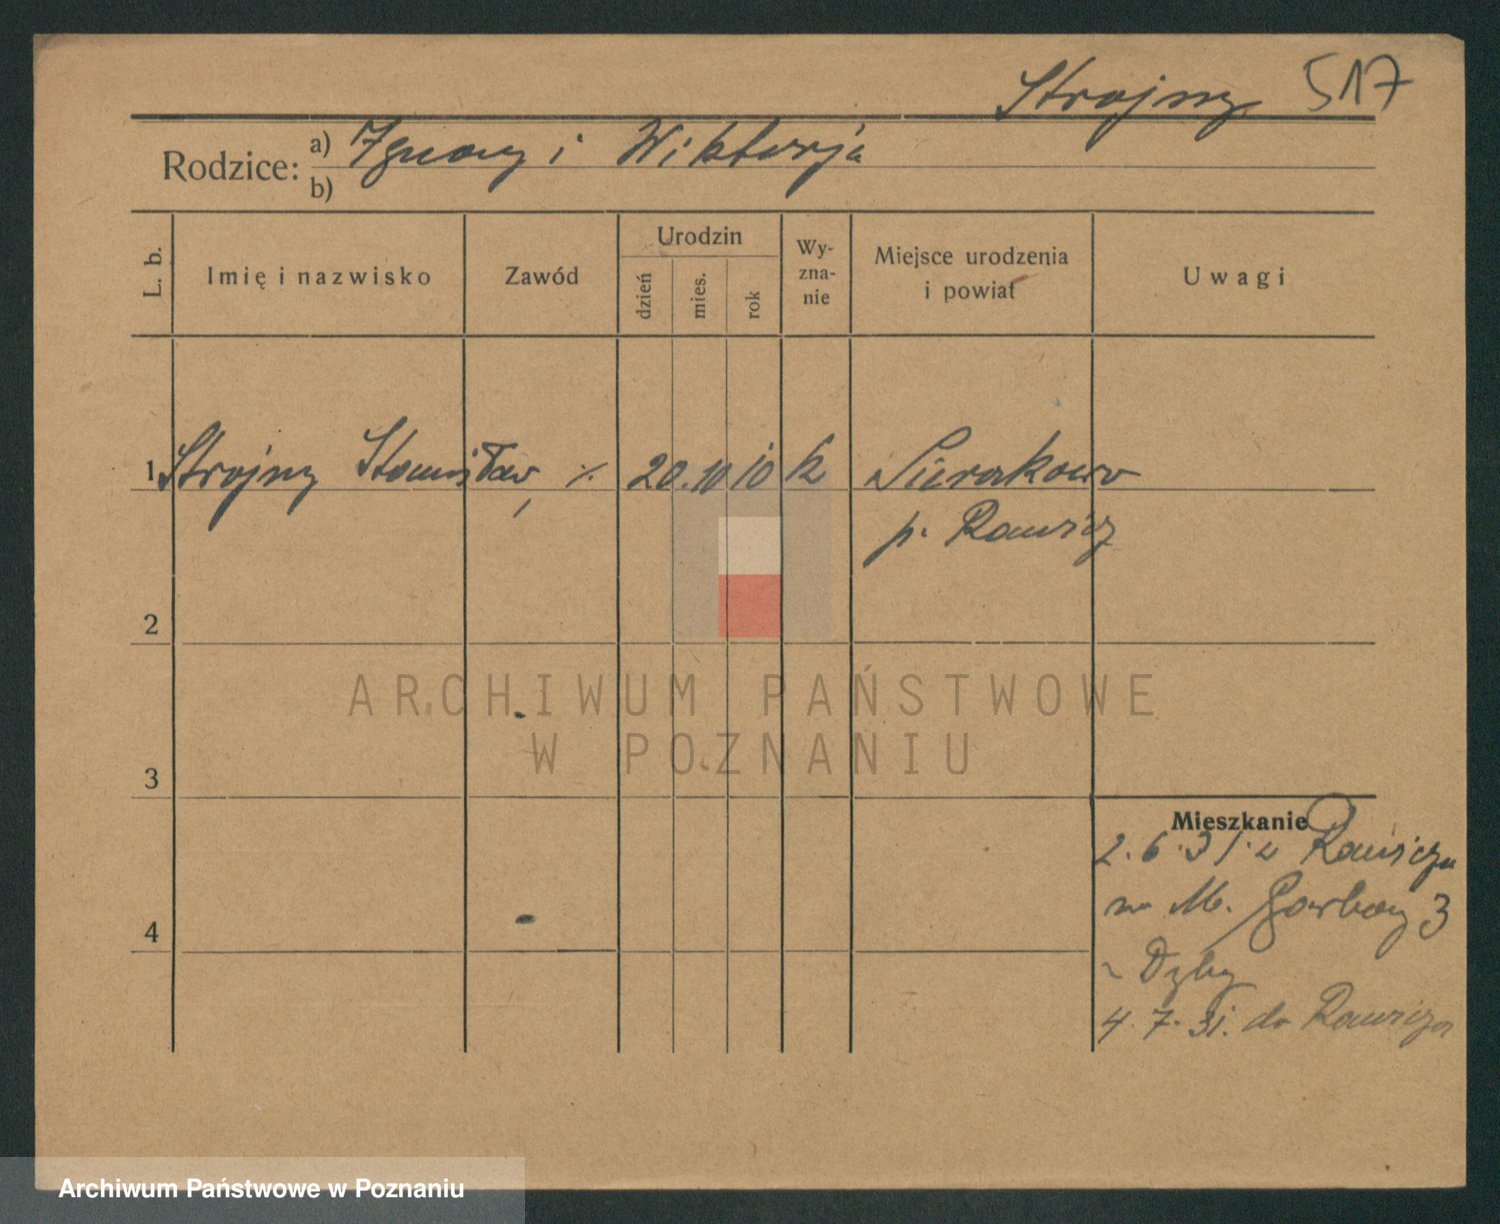 Strojny 517
Rodzice: a) Ignacy i Wiktorja
b)
L. b.
Imię i nazwisko
Zawód
Urodzin
dzień
mies.
rok
Wy-
zna-
nie
Miejsce urodzenia
i powiat
Uwagi
1 Strojny Stanisław, ./. 20.10 10 k Sierakowo
p. Rawicz
2
ARCHIWUM PAŃSTWOWE
W POZNANIU
3
Mieszkanie
2.6.31. z Rawicza
na M. Garbary 3
4
4.7.31. do Rawicza
Archiwum Państwowe w Poznaniu